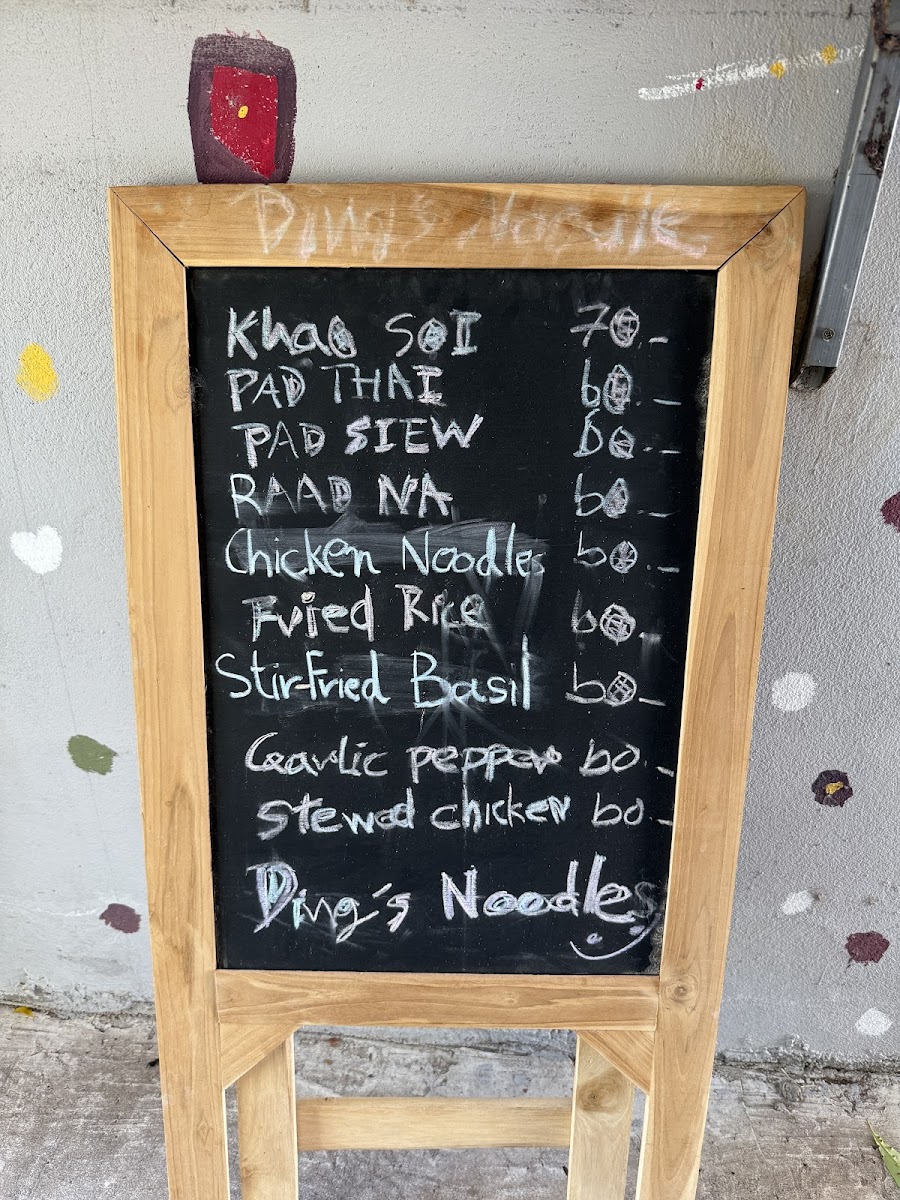 Ding's Noodle
Khao SOI 70.-
PAD THAI 60.-
PAD SIEW 60.-
RAAD NA 60.-
Chicken Noodles 60.-
Fried Rice 60.-
Stir-Fried Basil 60.-
Garlic pepper 60.-
Stewed chicken 60.-
Ding's Noodles